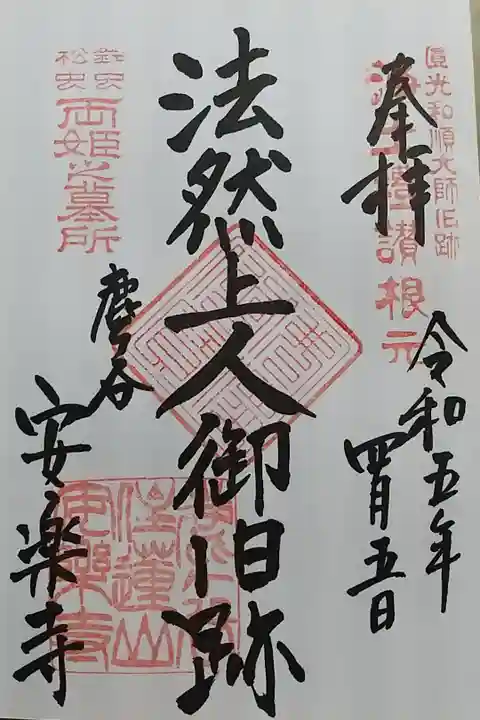 圓光和順大師旧跡
禮讃根元
奉拝
令和五年
四月五日
法然上人御旧跡
鈴虫
松虫
両姫之墓所
鹿谷
安楽寺
住蓮山
安樂寺